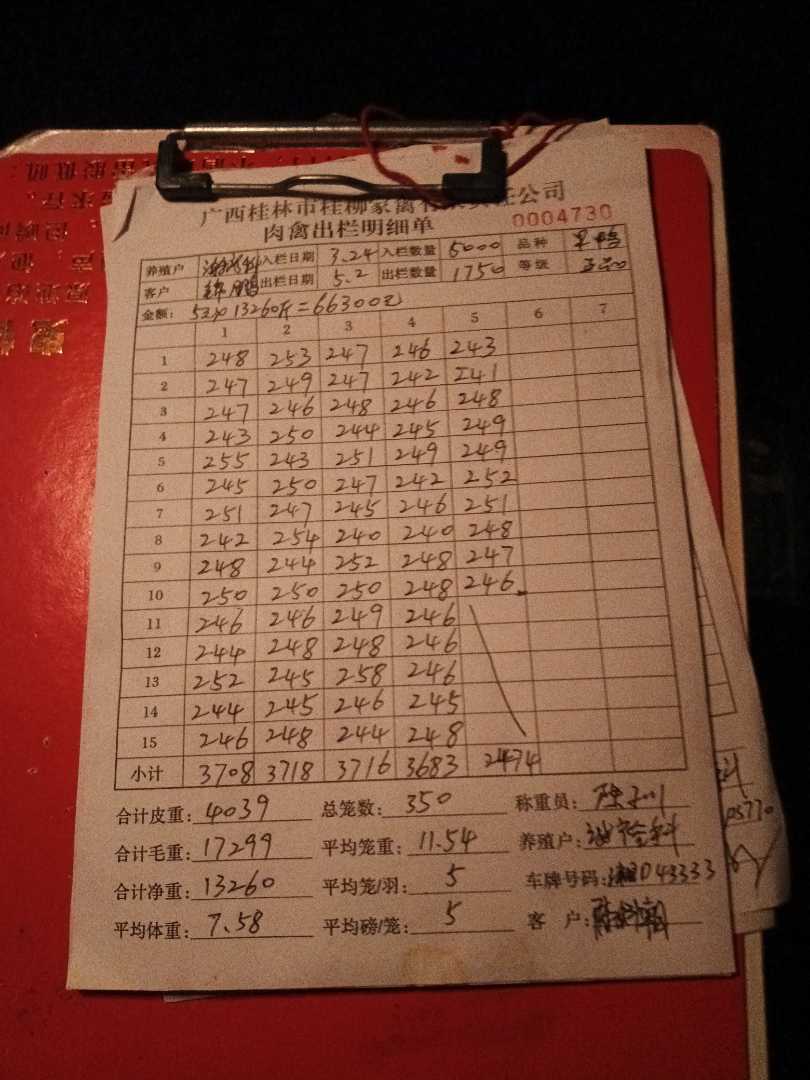 广西桂林市桂柳家禽有限责任公司
肉禽出栏明细单 0004730
养殖户 入栏日期 3.24 入栏数量 5000 品种
客户 出栏日期 5.2 出栏数量 1750 等级
金额: 5元x13260斤=66300元
1 2 3 4 5 6 7
1 248 253 247 246 243
2 247 249 247 242 241
3 247 246 248 246 248
4 243 250 244 245 249
5 255 243 251 249 249
6 245 250 247 242 252
7 251 247 245 246 251
8 242 254 240 240 248
9 248 244 252 248 247
10 250 250 250 248 246
11 246 246 249 246
12 244 248 248 246
13 252 245 258 246
14 244 245 246 245
15 246 248 244 248
小计 3708 3718 3716 3683 2474
合计皮重: 4039 总笼数: 350 称重员:
合计毛重: 17299 平均笼重: 11.54 养殖户:
合计净重: 13260 平均笼/羽: 5 车牌号码: 湘D43333
平均体重: 7.58 平均磅/笼: 5 客 户: